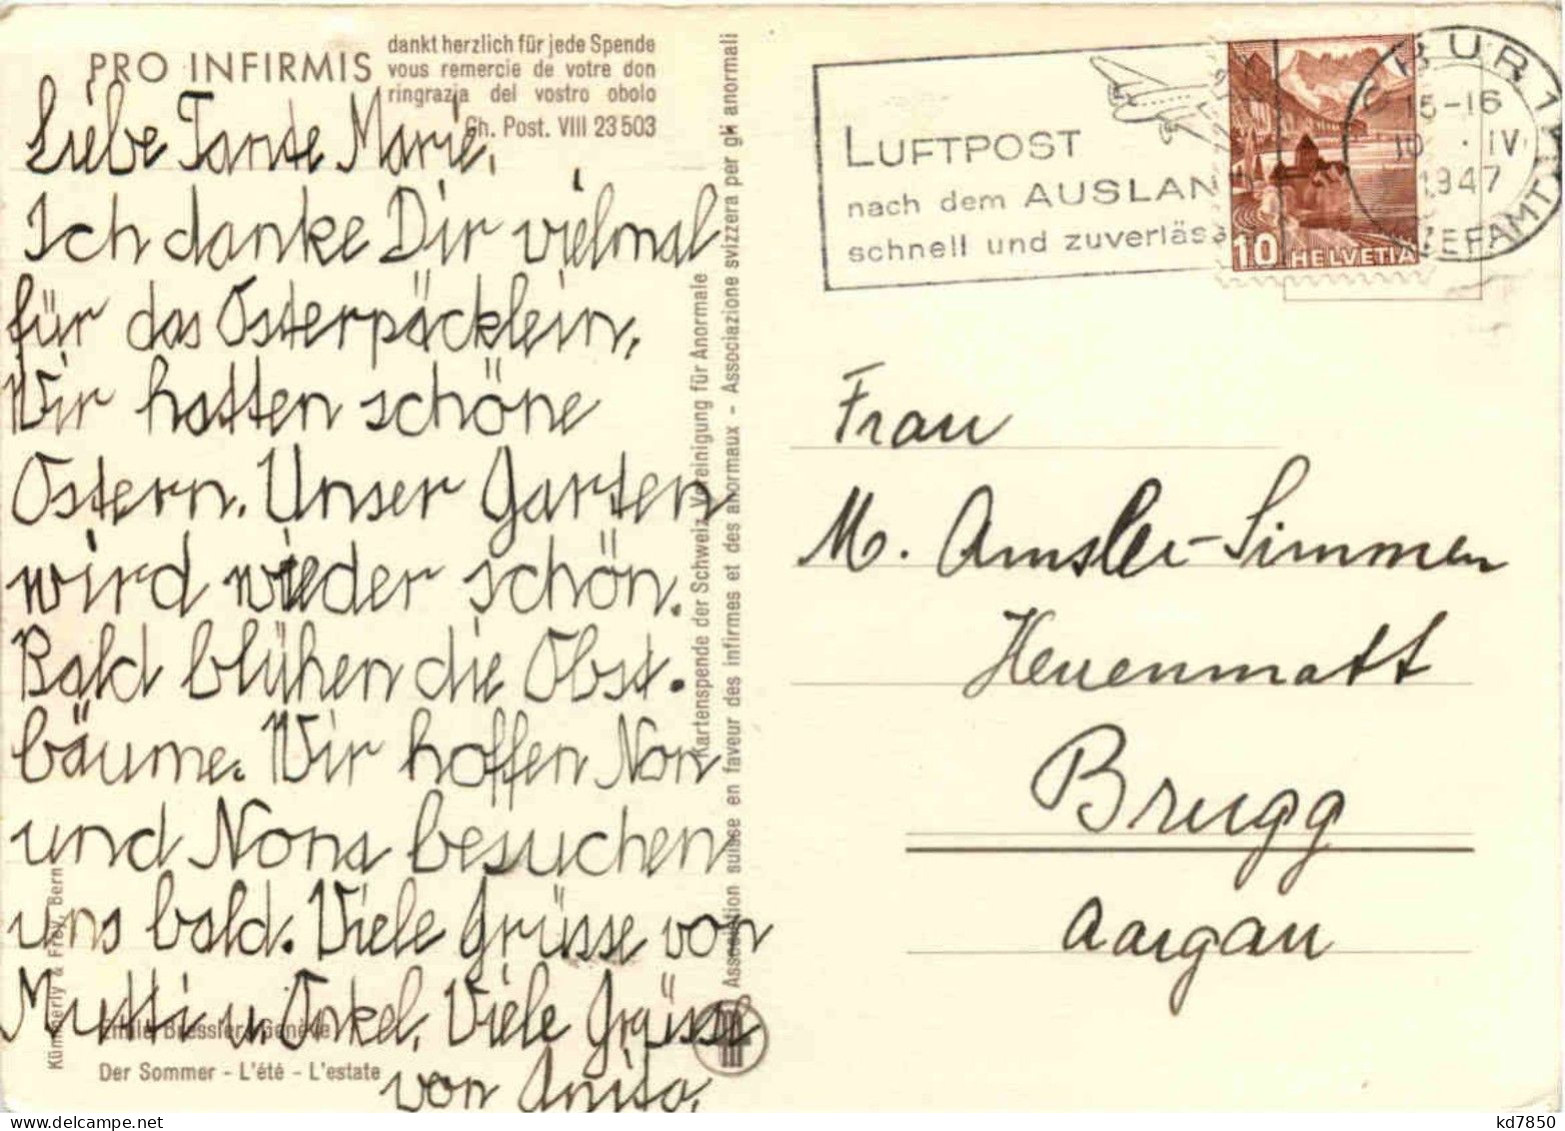 PRO INFIRMIS
dankt herzlich für jede Spende
vous remercie de votre don
ringrazia del vostro obolo
Ch. Post. VIII 23503
Liebe Tante Marie,
Ich danke Dir vielmal
für das Osterpäcklein,
Wir hatten schöne
Ostern. Unser Garten
wird wieder schön.
Bald blühen die Obst-
bäume. Wir hoffen Non
und Nona besuchen
uns bald. Viele Grüsse von
Mutti u. Onkel, Viele Grüsse
von Anita,
Der Sommer - L'été - L'estate
Kümmerly & Frey, Bern
Kartenspende der Schweiz. Vereinigung für Anormale
Association suisse en faveur des infirmes et des anormaux - Associazione svizzera per gli anormali
LUFTPOST
nach dem AUSLAN
schnell und zuverläs
10 HELVETIA
15-16
10. IV
1947
Frau
M. Amsler-Simmen
Heuenmatt
Brugg
Aargau
kd7850